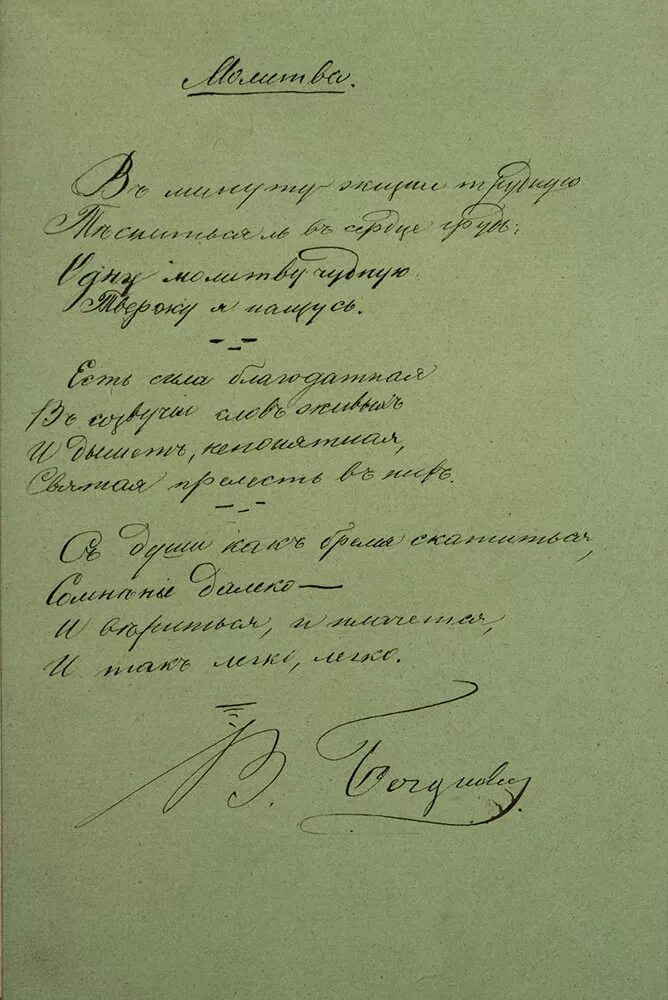 Молитва.
Въ минуту жизни трудную
Тѣсниться ль въ сердце грусть:
Одну молитву чудную
Твержу я наизусь.
Есть сила благодатная
Въ созвучіи словъ живыхъ
И дышетъ, непонятная,
Святая прелесть въ нихъ.
Съ души какъ бремя скатиться,
Сомнѣніе далеко—
И вѣриться, и плачется,
И такъ легко, легко.
В.